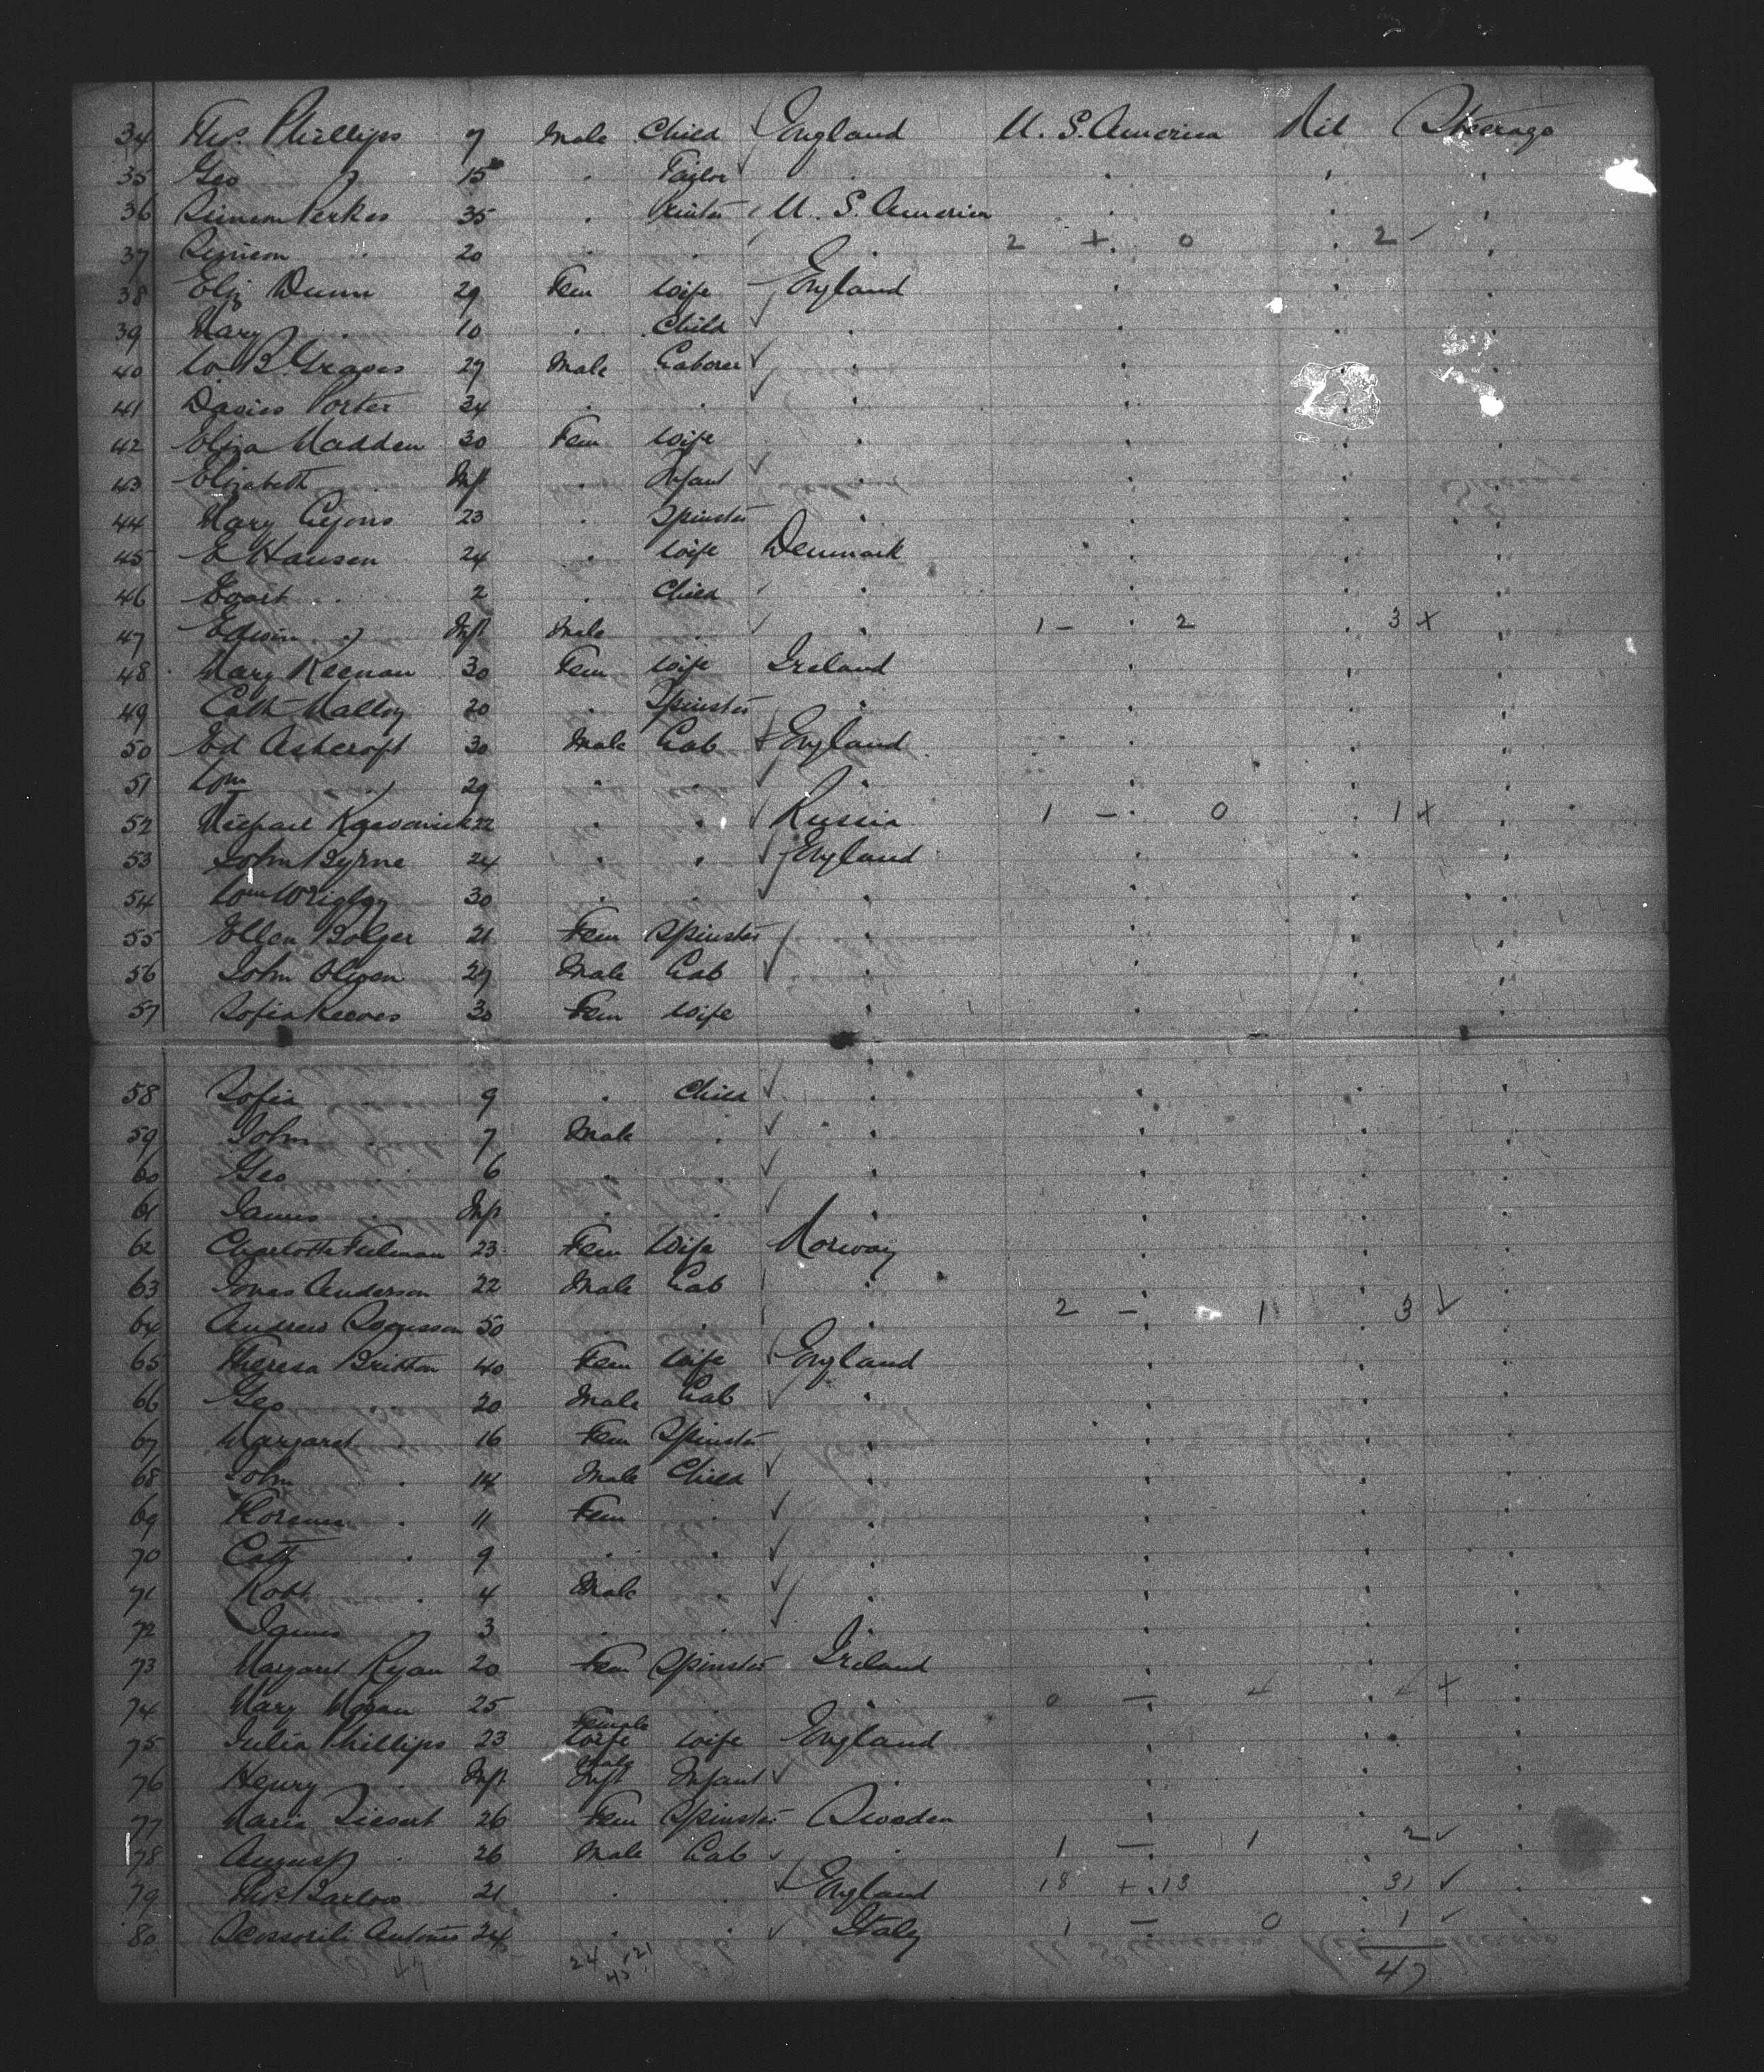 34 Thos. Phillips 7 Male Child England U. S. America Nil Steerage
35 Geo " 15 . Tailor . . . .
36 Simeon Perkes 35 . Printer U. S. America . . .
37 Simeon . 20 . . . 2 + 0 . 2 .
38 Eliz Dunn 29 Fem Wife England . . .
39 Mary . 10 . Child . . . .
40 W B. Graves 27 Male Laborer . . . .
41 Davies Porter 34 . . . . . .
42 Eliza Madden 30 Fem Wife . . . .
43 Elizabeth . Inf . Infant . . . .
44 Mary Lyons 23 . Spinster . . . .
45 E Hansen 24 . Wife Denmark . . .
46 . 2 . Child . . . .
47 Edwin " Inft Male . . 1 - 2 . 3 x .
48 Mary Keenan 30 Fem Wife Ireland . . .
49 Cath Malloy 20 . Spinster . . . .
50 Ed Ashcroft 30 Male Lab England . . .
51 Wm " 29 . . . . . .
52 Michael 22 . . Russia 1 - 0 . 1 x .
53 John Byrne 24 . . England . . .
54 Wm Wrigley 30 . . . . . .
55 Ellen Bolger 21 Fem Spinster . . . .
56 John Olison 27 Male Lab . . . .
57 Sofia Reeves 30 Fem Wife . . . .
58 Sofia . 9 . Child . . . .
59 John . 7 Male . . . . .
60 Geo . 6 . . . . . .
61 James . Inft . . . . . .
62 Charlotte 23 Fem Wife Norway . . .
63 Jonas Anderson 22 Male Lab . . . .
64 Andrew 50 . . . 2 - 1 . 3 .
65 Theresa Britton 40 Fem Wife England . . .
66 Geo . 20 Male Lab . . . .
67 Margaret . 16 Fem Spinster . . . .
68 John . 14 Male Child . . . .
69 Florence . 11 Fem . . . . .
70 Cath . 9 . . . . . .
71 Robt . 4 Male . . . . .
72 James " 3 . . . . . .
73 Margaret Ryan 20 Fem Spinster Ireland . . .
74 Mary Mogan 25 . . . 0 - 4 . 4 + .
Female
75 Julia Phillips 23 Wife Wife England . . .
Male
76 Henry . Inft Inft Infant . . . .
77 Maria 26 Fem Spinster Sweden . . .
78 August . 26 Male Lab . 1 - 1 . 2 .
79 Thos Barlow 21 . . England 18 + 13 31 .
80 Antonio 24 . . Italy 1 - 0 1 .
47 24 21 47